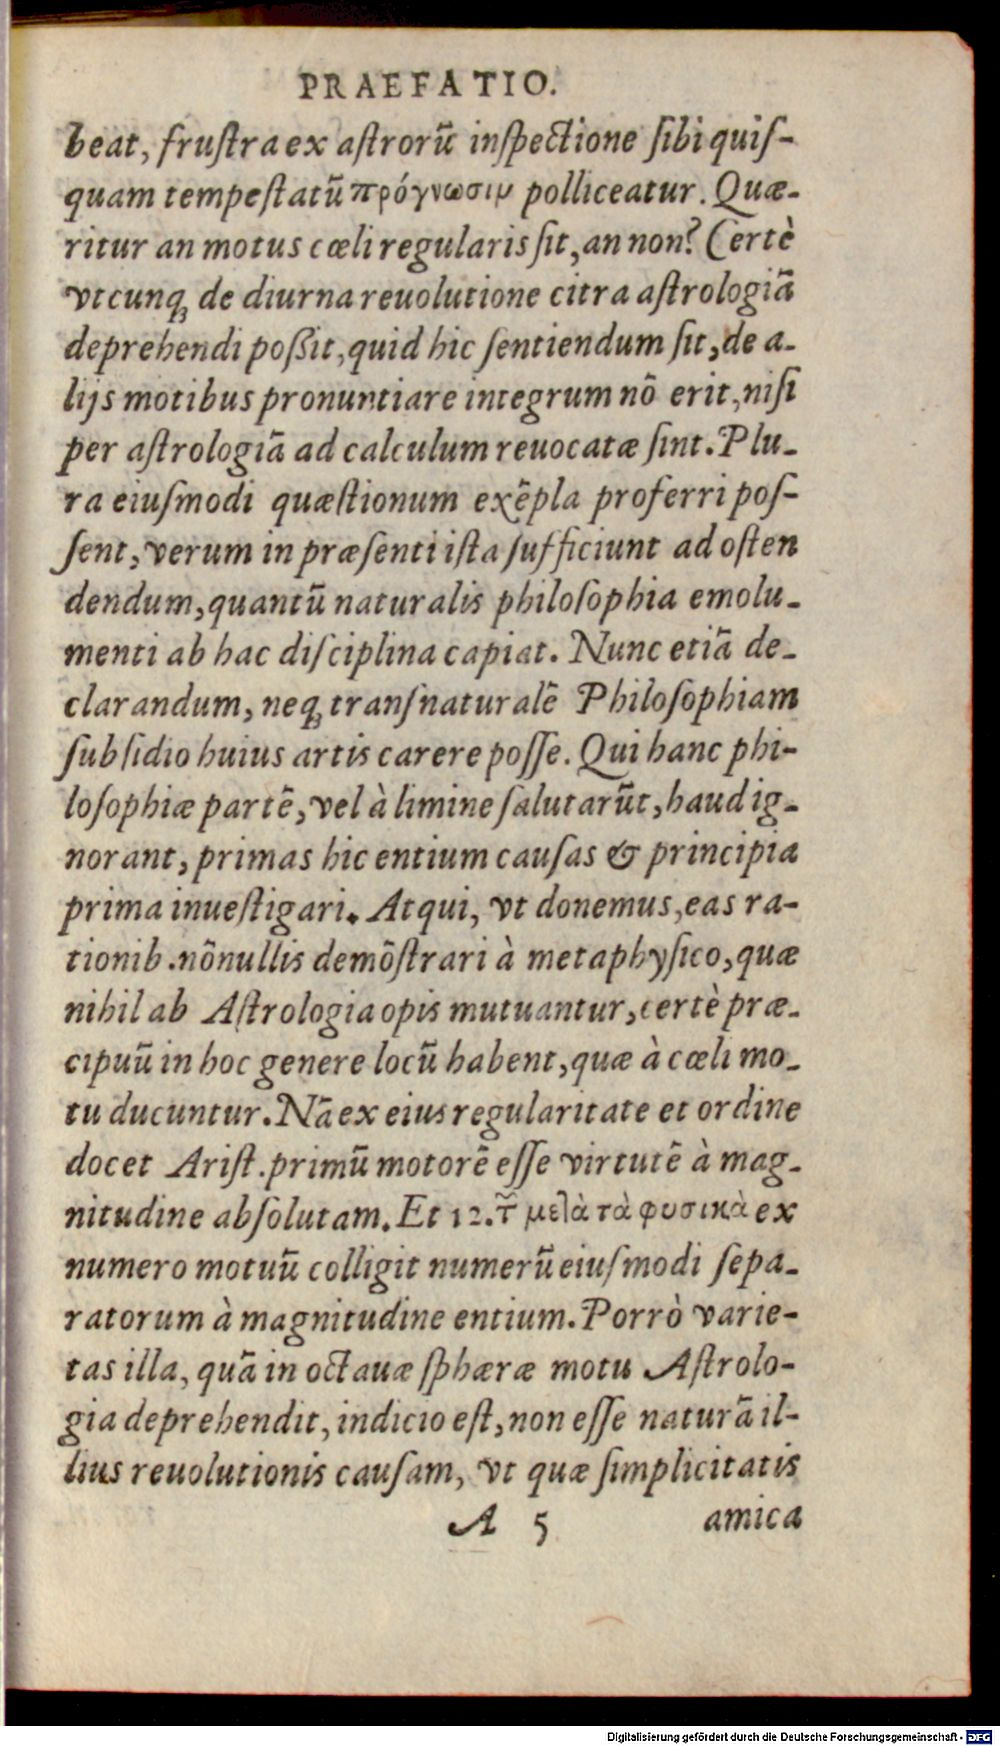 PRAEFATIO.
beat, fruſtra ex aſtrorũ inſpectione ſibi quiſ-
quam tempeſtatũ πρόγνωσιμ polliceatur. Quæ-
ritur an motus cœli regularis ſit, an non? Certè
vtcunq; de diurna reuolutione citra aſtrologiã
deprehendi poßit, quid hic ſentiendum ſit, de a-
lijs motibus pronuntiare integrum nõ erit, niſi
per aſtrologiã ad calculum reuocatæ ſint. Plu-
ra eiuſmodi quæſtionum exẽpla proferri poſ-
ſent, verum in præſenti iſta ſufficiunt ad oſten
dendum, quantũ naturalis philoſophia emolu-
menti ab hac diſciplina capiat. Nunc etiã de-
clarandum, neq; tranſnaturalẽ Philoſophiam
ſubſidio huius artis carere poſſe. Qui hanc phi-
loſophiæ partẽ, vel à limine ſalutarũt, haud ig-
norant, primas hic entium cauſas & principia
prima inueſtigari. Atqui, vt donemus, eas ra-
tionib. nõnullis demõſtrari à metaphyſico, quæ
nihil ab Aſtrologia opis mutuantur, certè præ-
cipuũ in hoc genere locũ habent, quæ à cœli mo-
tu ducuntur. Nã ex eius regularitate et ordine
docet Ariſt. primũ motorẽ eſſe virtutẽ à mag-
nitudine abſolutam. Et 12. τ῀ μελὰ τὰ φυσικὰ ex
numero motuũ colligit numerũ eiuſmodi ſepa-
ratorum à magnitudine entium. Porrò varie-
tas illa, quã in octauæ ſphæræ motu Aſtrolo-
gia deprehendit, indicio eſt, non eſſe naturã il-
lius reuolutionis cauſam, vt quæ ſimplicitatis
A 5 amica
Digitalisierung gefördert durch die Deutsche Forschungsgemeinschaft - DFG